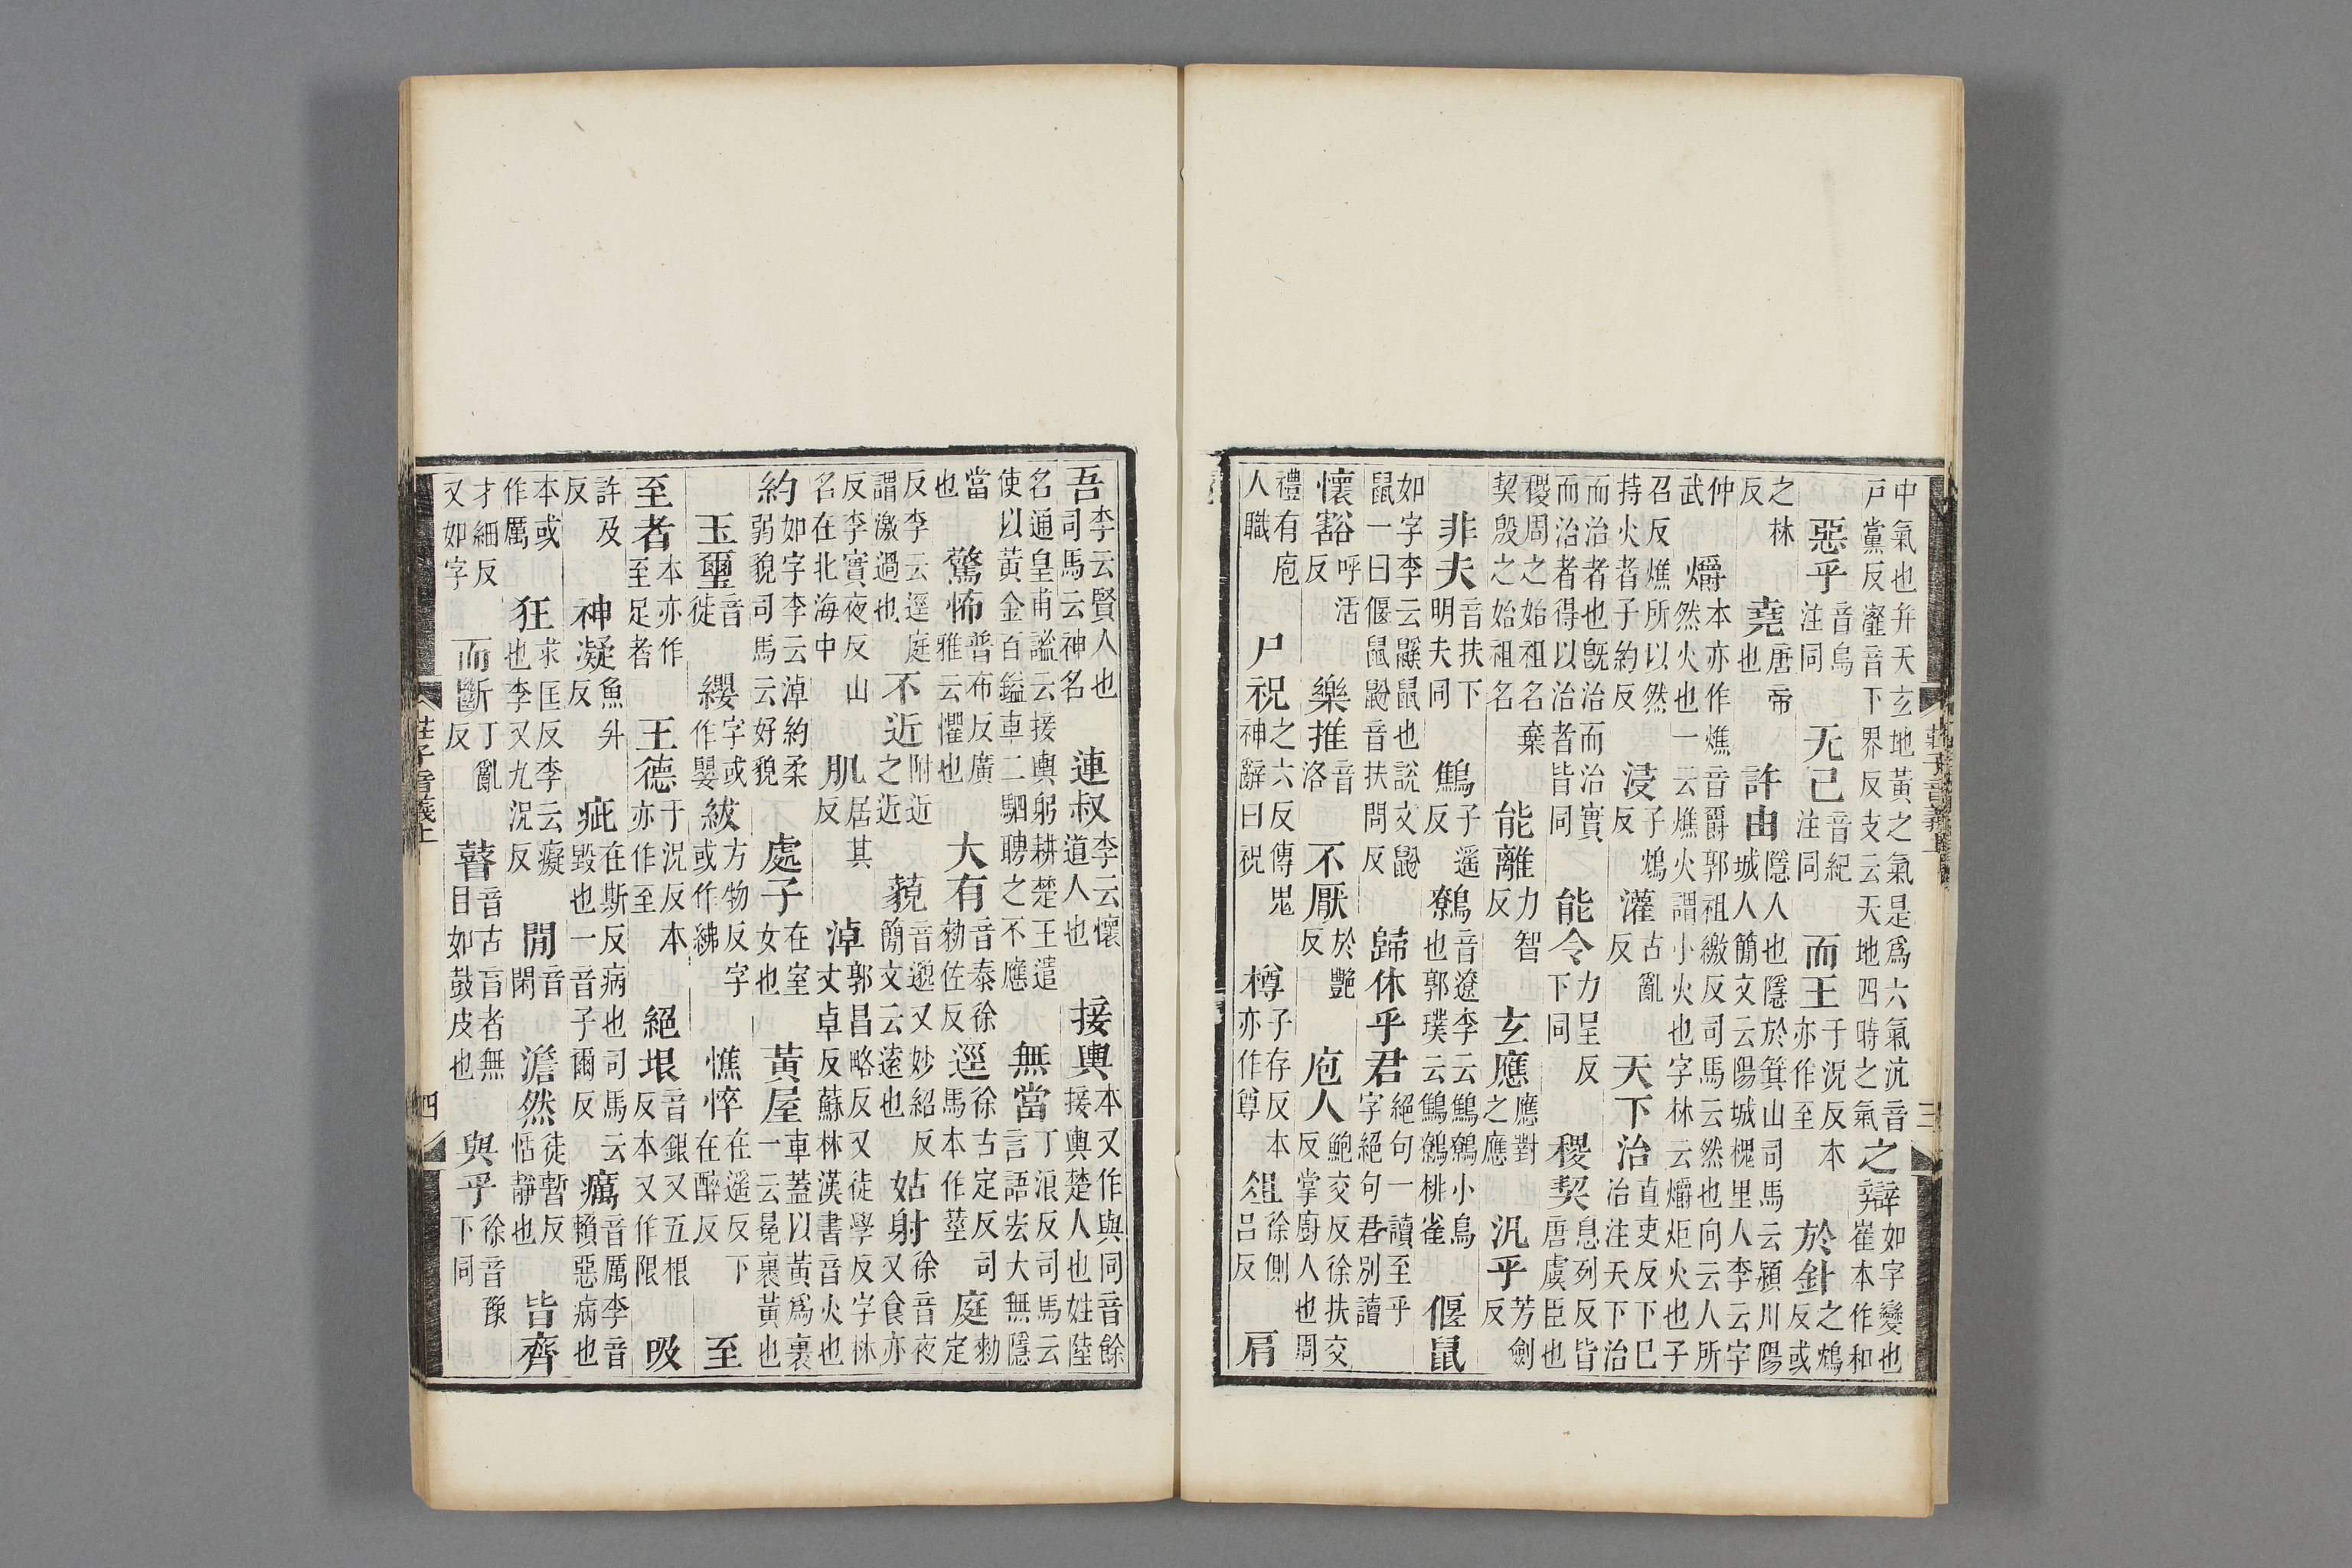 中氣也弁天玄地黃之氣是爲六氣沆音戸黨反瀣音下界反支云天地四時之氣 之辯 如字變也崔本作和
惡乎 音烏注同 无已 音紀注同 而王 于況反本亦作至 於針 之鴆反或
之林反 堯 唐帝也 許由 隱人也隱於箕山司馬云潁川陽城人簡文云陽城槐里人李云字
仲武 爝 本亦作燋音爵郭祖繳反司馬云然也向云人所然火也一云燋火謂小火也字林云爝炬火也子
召反燋所以然持火者子約反 浸 子鴆反 灌 古亂反 天下治 直吏反下已治注天下治
而治者也旣治而治實而治者得以治者皆同 能令 力呈反下同 稷契 息列反皆唐虞臣也
稷周之始祖名棄契殷之始祖名 能離 力智反 玄應 應對之應 汎乎 芳劍反
非夫 音扶下明夫同 鷦 子遥反 鷯 音遼李云鷦鷯小鳥也郭璞云鷦鷯桃雀 偃鼠
如字李云鼷鼠也說文鼢鼠一曰偃鼠鼢音扶問反 歸休乎君 絕句一讀至乎字絕句君別讀
懷豁 呼活反 樂推 音洛 不厭 於艷反 庖人 鮑交反徐扶交反掌廚人也周
禮有庖人職 尸祝 之六反傳鬼神辭曰祝 樽 子存反本亦作尊 俎 徐側呂反 肩
莊子音義上 三
吾 李云賢人也司馬云神名 連叔 李云懷道人也 接輿 本又作與同音餘接輿楚人也姓陸
名通皇甫謐云接輿躬耕楚王遣使以黃金百鎰車二駟聘之不應 無當 丁浪反司馬云言語宏大無隱
當也 驚怖 普布反廣雅云懼也 大有 音泰徐勑佐反 逕 徐古定反司馬本作莖 庭 勑定
反李云逕庭謂激過也 不近 附近之近 藐 音邈又妙紹反簡文云遠也 姑射 徐音夜又食亦
反李實夜反山名在北海中 肌 居其反 淖 郭昌略反又徒學反字林丈卓反蘇林漢書音火也
約 如字李云淖約柔弱貌司馬云好貌 處子 在室女也 黃屋 車蓋以黃爲裏一云冕裏黃也
玉璽 音徙 纓 字或作嬰 紱 方物反字或作紼 憔悴 在遥反下在醉反 至
至者 本亦作至足者 王德 于況反本亦作至 絕垠 音銀又五根反本又作限 吸
許及反 神凝 魚升反 疵 在斯反病也司馬云毀也一音子爾反 癘 音厲李音賴惡病也
本或作厲 狂 求匡反李云癡也李又九況反 閒 音閑 澹然 徒暫反恬靜也 皆齊
才細反又如字 而斷 丁亂反 瞽 音古盲者無目如鼓皮也 與乎 徐音豫下同
莊子音義上 四